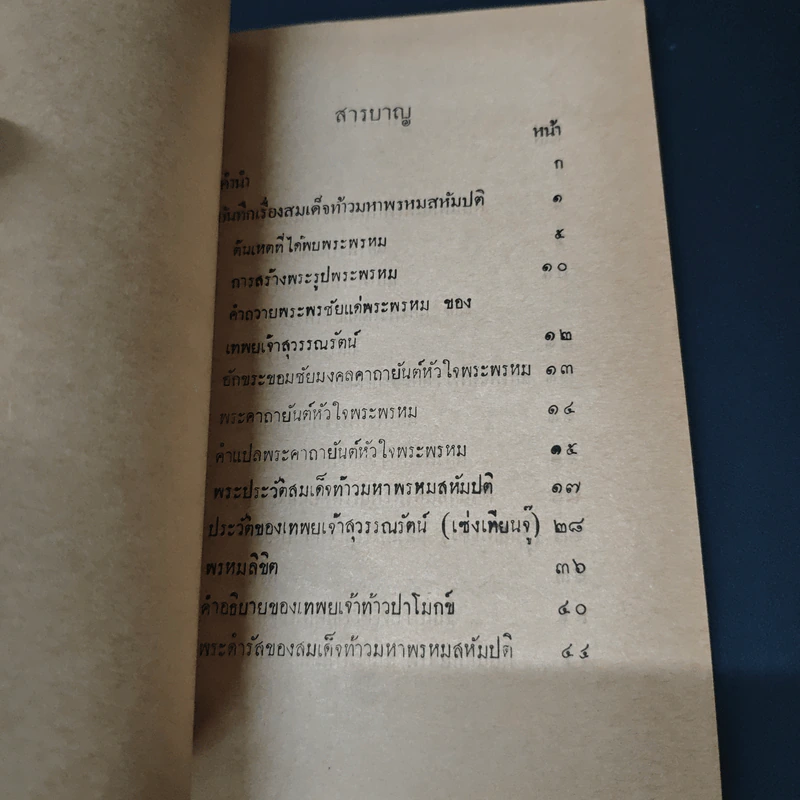 สารบาญ
หน้า
คำนำ ก
บันทึกเรื่องสมเด็จท้าวมหาพรหมสหัมปติ ๑
ต้นเหตุที่ได้พบพระพรหม ๕
การสร้างพระรูปพระพรหม ๑๐
คำถวายพระพรชัยแด่พระพรหม ของ
เทพยเจ้าสุวรรณรัตน์ ๑๒
อักขระขอมชัยมงคลคาถายันต์หัวใจพระพรหม ๑๓
พระคาถายันต์หัวใจพระพรหม ๑๔
คำแปลพระคาถายันต์หัวใจพระพรหม ๑๕
พระประวัติสมเด็จท้าวมหาพรหมสหัมปติ ๑๗
ประวัติของเทพยเจ้าสุวรรณรัตน์ (เซ่งเทียนจู๊) ๒๘
พรหมลิขิต ๓๖
คำอธิบายของเทพยเจ้าท้าวปาโมกข์ ๔๐
พระดำรัสของสมเด็จท้าวมหาพรหมสหัมปติ ๔๔